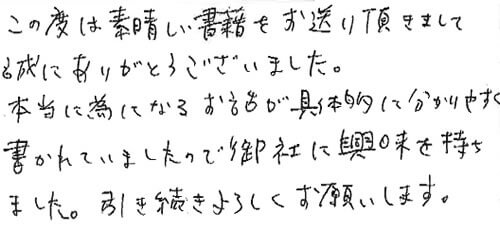 この度は素晴しい書籍をお送り頂きまして
誠にありがとうございました。
本当に為になるお話が具体的に分かりやすく
書かれていましたので御社に興味を持ち
ました。引き続きよろしくお願いします。